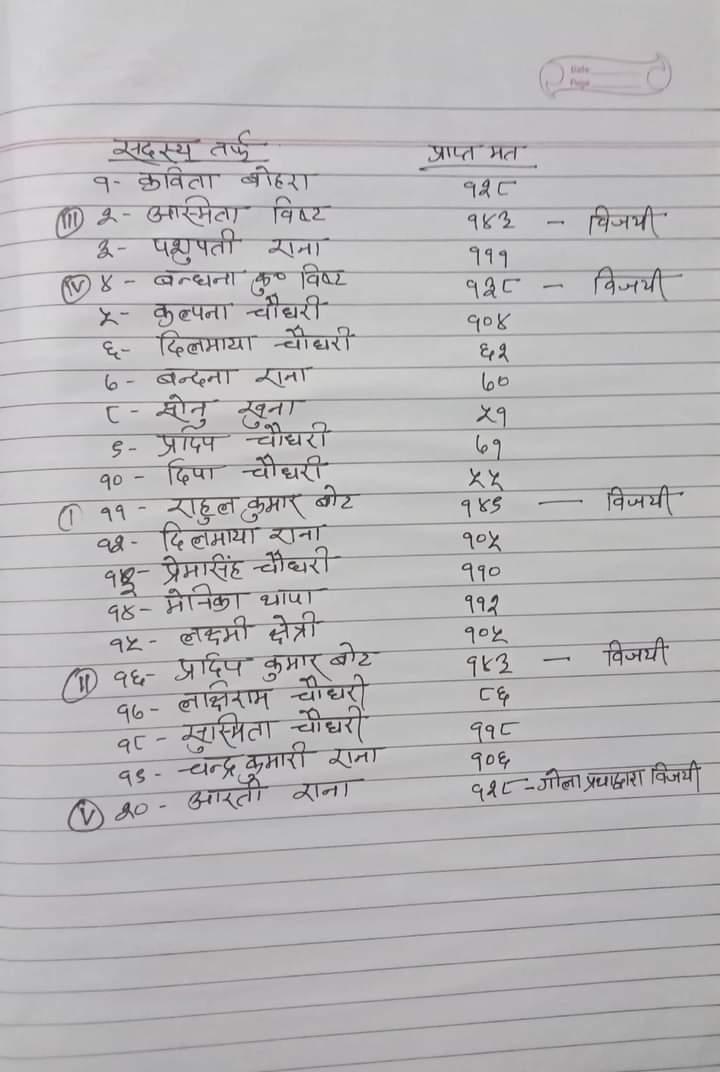 Date
Page
सदस्य तर्फ प्राप्त मत
१- कविता बोहरा १२८
III २- अस्मिता विष्ट १४३ - विजयी
३- पशुपती राना १११
IV ४- बन्धना कु० विष्ट १३८ - विजयी
५- कल्पना चौधरी १०४
६- दिलमाया चौधरी ६२
७- बन्दना राना ७०
८- सोनु खुना ५१
९- प्रदिप चौधरी ७१
१०- दिपा चौधरी ५५
I ११- राहुल कुमार बोट १४९ - विजयी
१२- दिलमाया राना १०५
१३- प्रेमसिंह चौधरी ११०
१४- मेनिका थापा ११२
१५- लक्ष्मी क्षेत्री १०५
II १६- प्रदिप कुमार बोट १४३ - विजयी
१७- लक्षिराम चौधरी ८६
१८- सुस्मिता चौधरी ११८
१९- चन्द्र कुमारी राना १०६
V २०- आरती राना १२८ - गोला प्रथाद्वारा विजयी